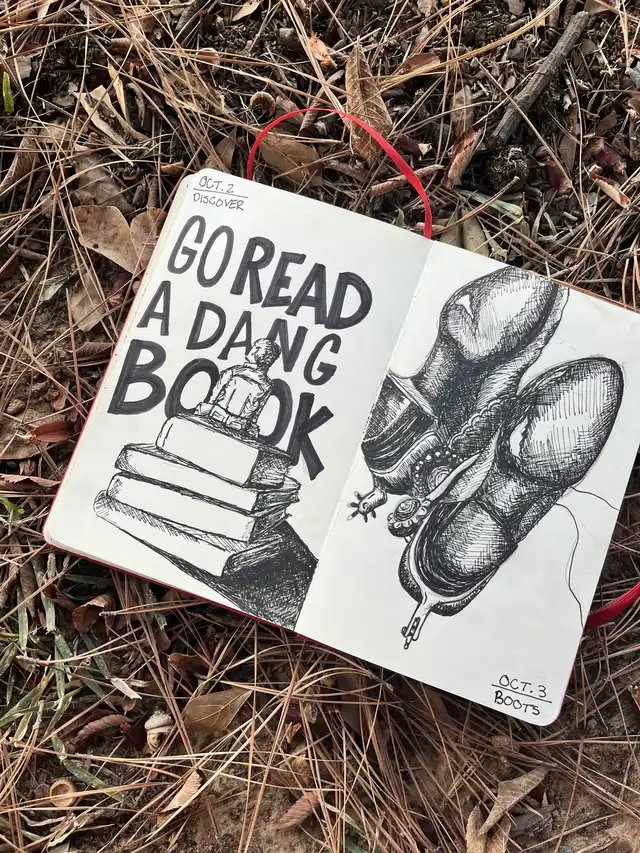 OCT. 2
DISCOVER
GO READ
A DANG
BOOK
OCT. 3
BOOTS